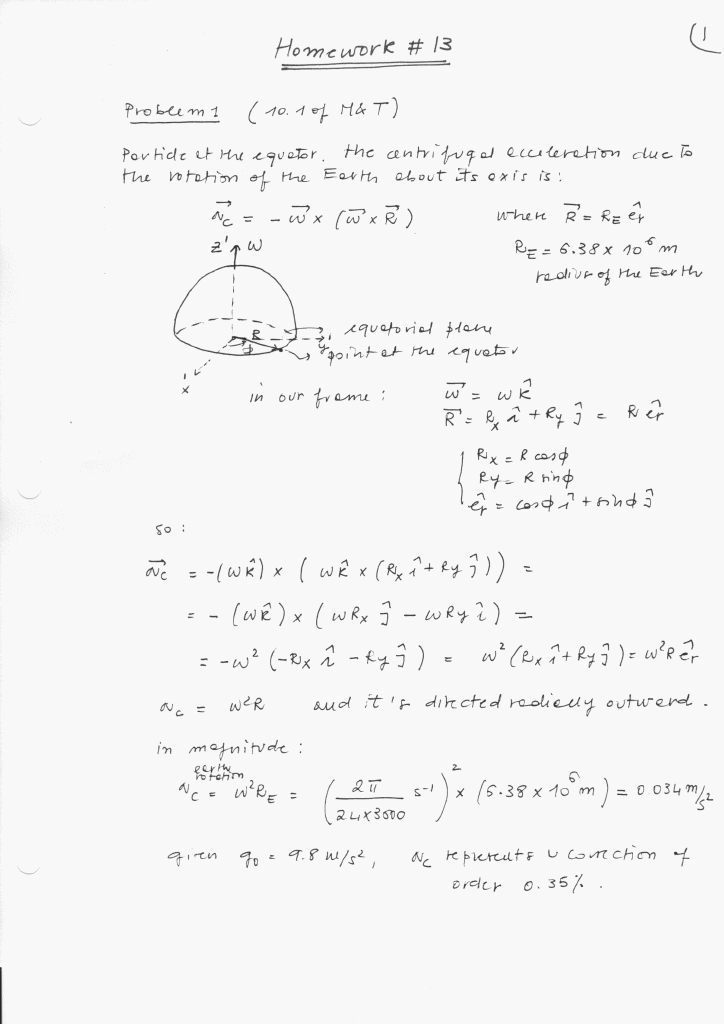 (1
Homework # 13
Problem 1 (10.1 of M&T)
Particle at the equator. the centrifugal acceleration due to
the rotation of the Earth about its axis is:
a⃗c = - ω⃗ × (ω⃗ × R⃗) where R⃗ = RE êr
z' ω RE = 6.38 × 10⁶ m
radius of the Earth
R equatorial plane
ϕ y' point at the equator
x'
in our frame: ω⃗ = ω k̂
R⃗ = Rx î + Ry ĵ = R êr
Rx = R cosϕ
Ry = R sinϕ
êr = cosϕ î + sinϕ ĵ
so:
a⃗c = -(ωk̂) × (ωk̂ × (Rx î + Ry ĵ)) =
= - (ωk̂) × (ωRx ĵ - ωRy î) =
= -ω² (-Rx î - Ry ĵ) = ω² (Rx î + Ry ĵ) = ω²R êr
ac = ω²R and it's directed radially outward.
in magnitude:
earth
rotation
ac = ω²RE = (2π / 24×3600 s⁻¹)² × (6.38 × 10⁶ m) = 0.034 m/s²
given g0 = 9.8 m/s², ac represents a correction of
order 0.35%.